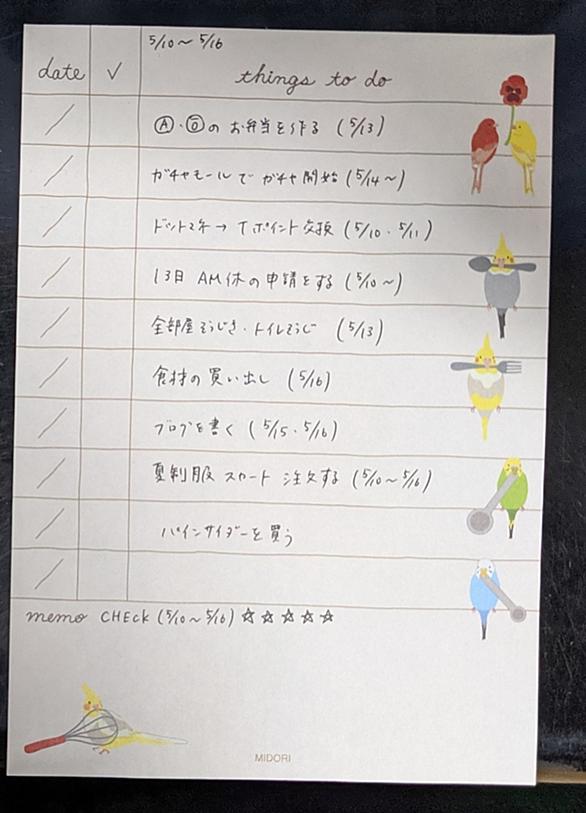 5/10～5/16
date ✓ things to do
Ⓐ・ⓞの お弁当を作る (5/13)
ガチャモールで ガチャ開始 (5/14～)
ドットマネー→Tポイント交換 (5/10・5/11)
13日 AM休の申請をする (5/10～)
全部屋そうじき・トイレそうじ (5/13)
食材の買い出し (5/16)
ブログを書く (5/15・5/16)
夏制服 スカート 注文する (5/10～5/16)
パインサイダーを買う
memo CHECK (5/10～5/16) ☆☆☆☆☆
MIDORI